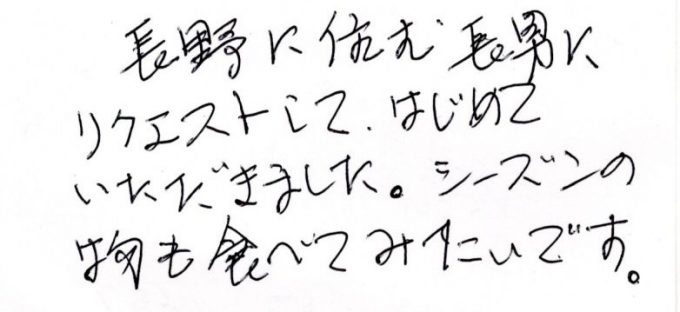 長野に住む長男に
リクエストして、はじめて
いただきました。シーズンの
物も食べてみたいです。